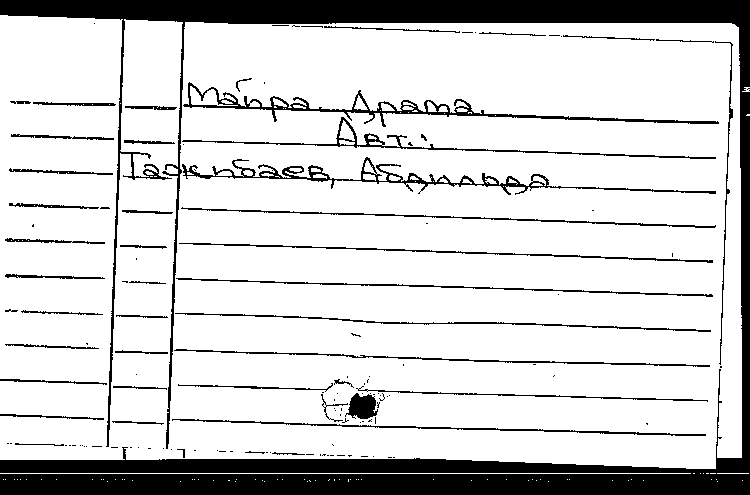 Майра. Драма.
Авт.:
Тажибаев, Абдильда